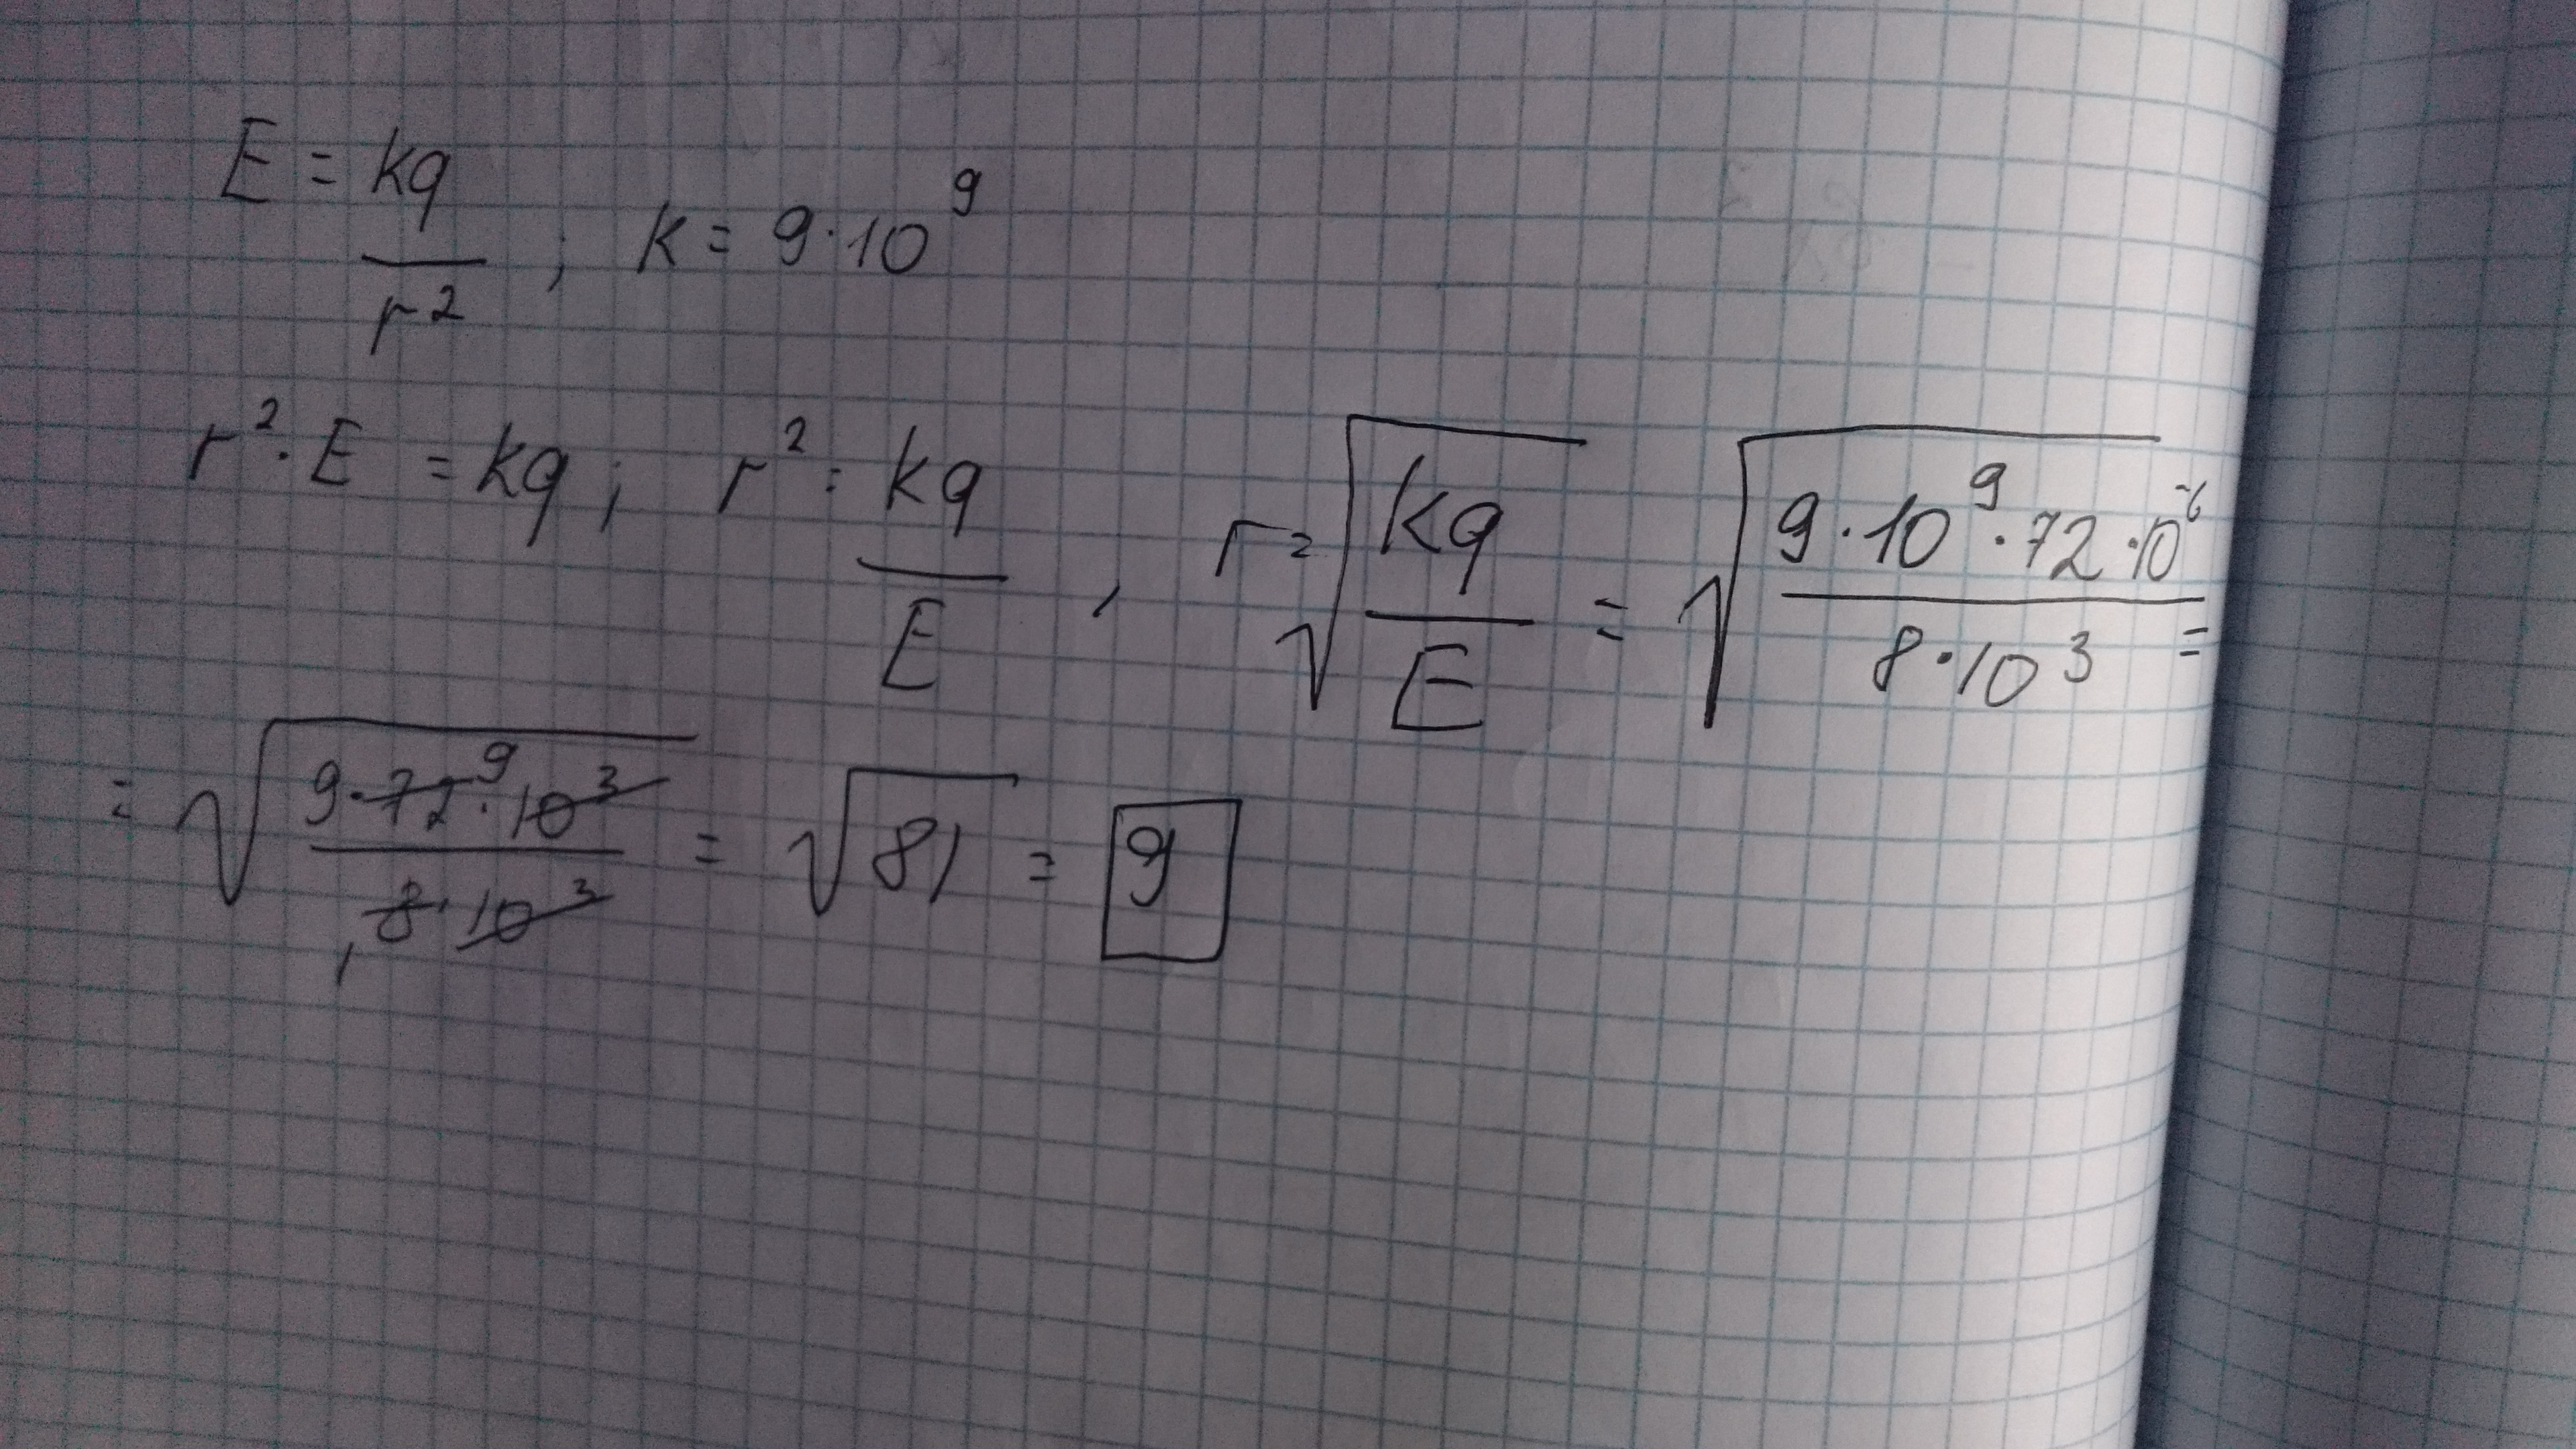 E = kq/r² ; k = 9·10⁹
r²·E = kq ; r² = kq/E , r = √(kq/E) = √(9·10⁹·72·10⁻⁶/8·10³) =
= √(9·72⁹·10³/₁8·10³) = √81 = 9